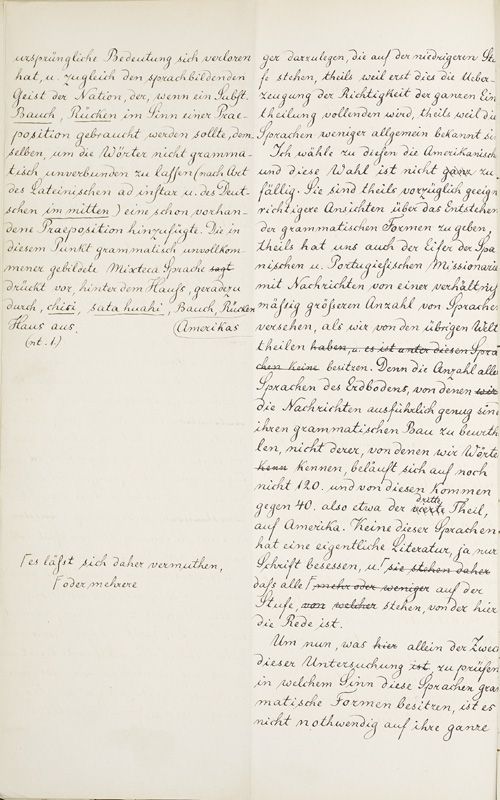 ursprüngliche Bedeutung sich verloren
hat, u. zugleich den sprachbildenden
Geist der Nation, der, wenn ein Subst.
Bauch, Rücken im Sinn einer Prae-
position gebraucht werden sollte, dem-
selben, um die Wörter nicht gramma-
tisch unverbunden zu lassen (nach Art
des Lateinischen ad instar u. des Deut-
schen im mitten) eine schon vorhan-
dene Praeposition hinzufügte. Die in
diesem Punkt grammatisch unvollkom-
mener gebildete Mixteca Sprache sagt
drückt vor, hinter dem Hause, geradezu
durch, chisi, sata huahi, Bauch, Rücken
Haus aus.
(Amerikas
(nt. 1)
⌈es läfst sich daher vermuthen,
⌈oder mehrere
ger darzulegen, die auf der niedrigeren Stu
fe stehen, theils weil erst dies die Ueber-
zeugung der Richtigkeit der ganzen Ein
theilung vollenden wird, theils weil die
Sprachen weniger allgemein bekannt si
Ich wähle zu diesen die Amerikanisch
und diese Wahl ist nicht ganz zu-
fällig. Sie sind theils vorzüglich geeign
richtigere Ansichten über das Entstehen
der grammatischen Formen zu geben,
theils hat uns auch der Eifer der Spa
nischen u. Portugiesischen Missionarie
mit Nachrichten von einer verhältnis
mäfsig gröfseren Anzahl von Sprachen
versehen, als wir von den übrigen Welt
theilen haben, u. es ist unter diesen Spra
chen keine besitzen. Denn die Anzahl alle
Sprachen des Erdbodens, von denen wir
die Nachrichten ausführlich genug sind
ihren grammatischen Bau zu beurthe
len, nicht derer, von denen wir Wörte
kenn kennen, beläuft sich auf noch
nicht 120. und von diesen kommen
gegen 40. also etwa der vierte dritte Theil,
auf Amerika. Keine dieser Sprachen
hat eine eigentliche Literatur, ja nur
Schrift besessen, u. ⌈sie stehen daher
dafs alle ⌈mehr oder weniger auf der
Stufe, von welcher stehen, von der hier
die Rede ist.
Um nun, was hier allein der Zwec
dieser Untersuchung ist zu prüfen
in welchem Sinn diese Sprachen gram
matische Formen besitzen, ist es
nicht nothwendig auf ihre ganze